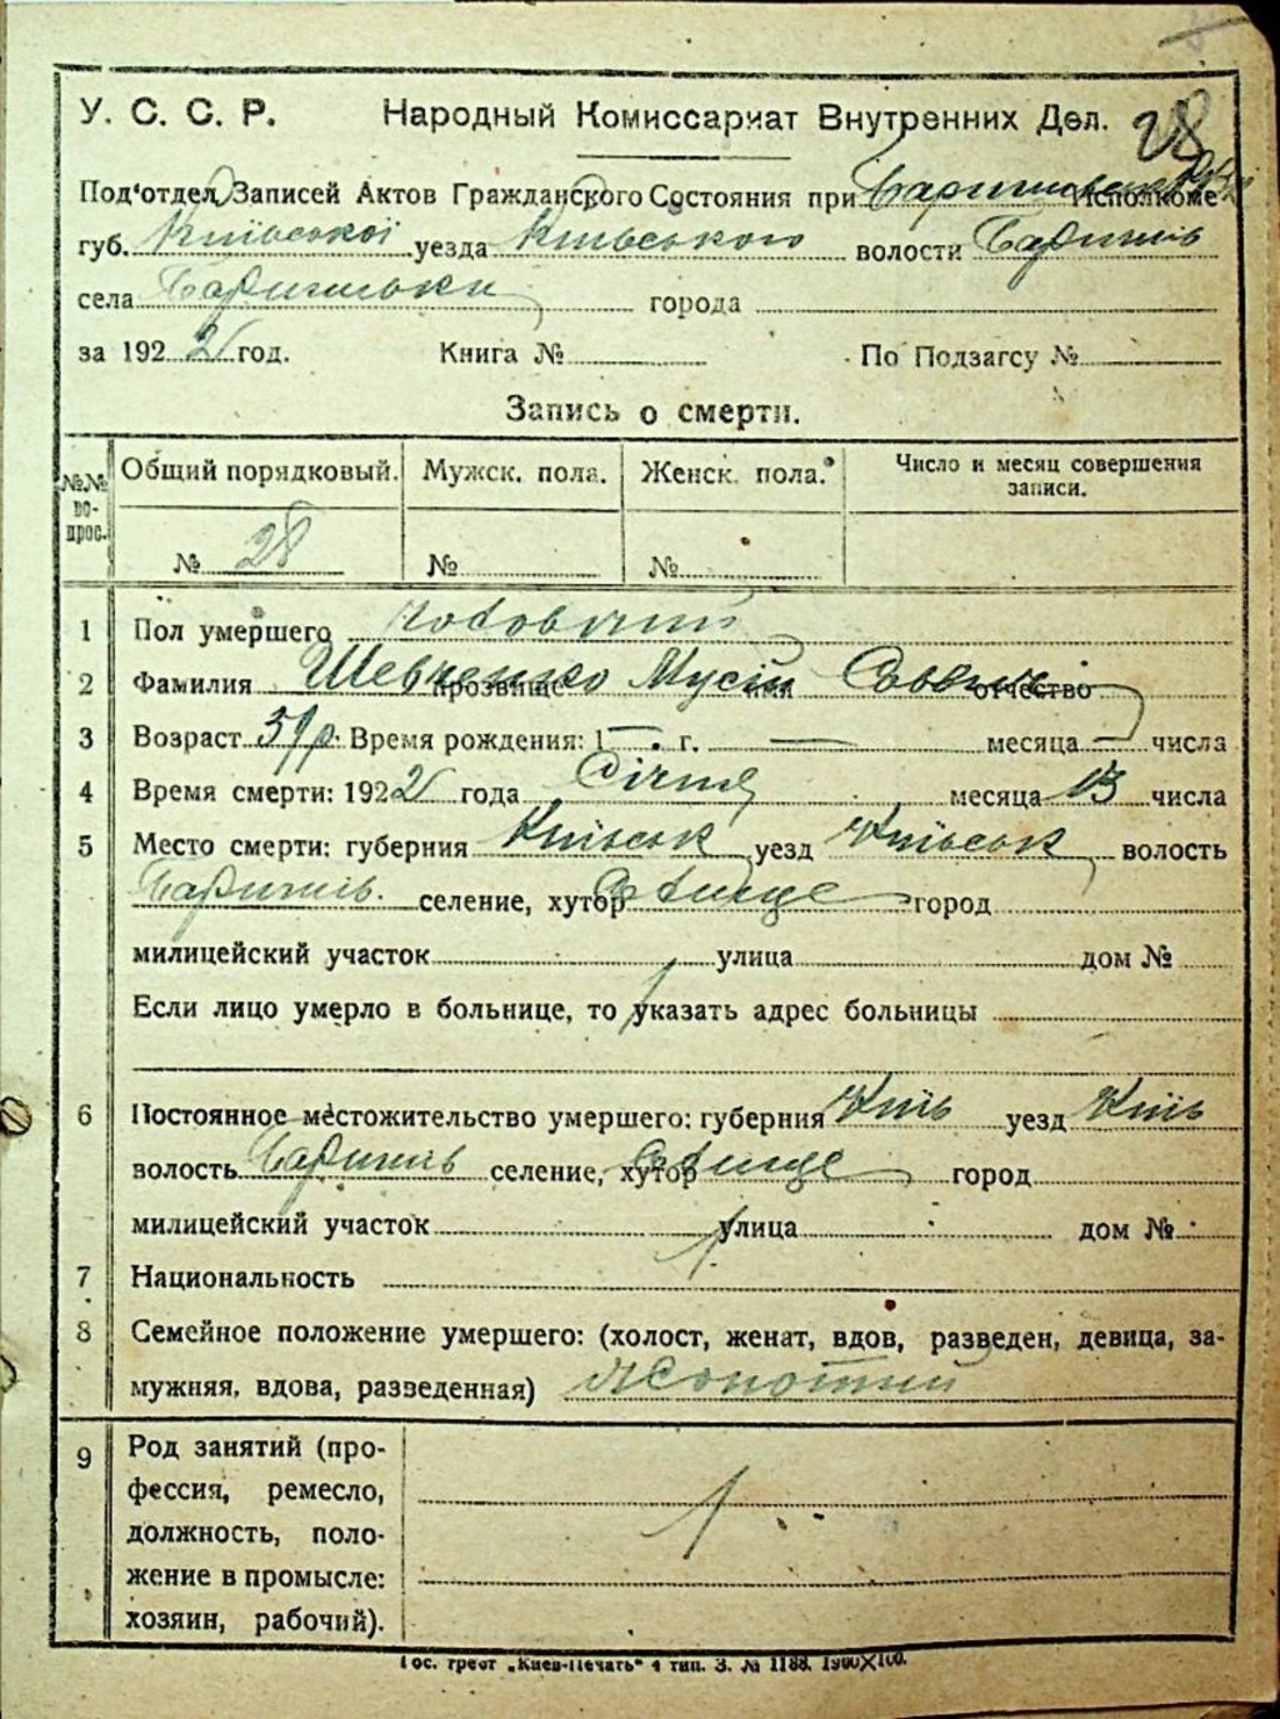 У. С. С. Р. Народный Комиссариат Внутренних Дел. 28
Под'отдел Записей Актов Гражданского Состояния при Исполкоме
губ. Київської уезда Київського волости Баришів
села Баришівки города
за 1922 год. Книга № По Подзагсу №
Запись о смерти.
№№ вопрос. Общий порядковый. Мужск. пола. Женск. пола. Число и месяц совершения записи.
№ 28 № №
1 Пол умершего чоловічий
2 Фамилия Шевченко прозвище Мусій имя отчество
3 Возраст 59 р. Время рождения: 1 — г. — месяца — числа
4 Время смерти: 1922 года Січня месяца 13 числа
5 Место смерти: губерния Київськ уезд Київськ волость
Баришів. селение, хутор город
милицейский участок улица дом №
Если лицо умерло в больнице, то указать адрес больницы
6 Постоянное местожительство умершего: губерния Київ уезд Київ
волость Баришів селение, хутор город
милицейский участок улица дом №
7 Национальность
8 Семейное положение умершего: (холост, женат, вдов, разведен, девица, за-
мужняя, вдова, разведенная) жонотий
9 Род занятий (про-
фессия, ремесло,
должность, поло-
жение в промысле:
хозяин, рабочий).
Гос. трест „Киев-Печать" 4 тип. З. № 1188. 1900✕100.